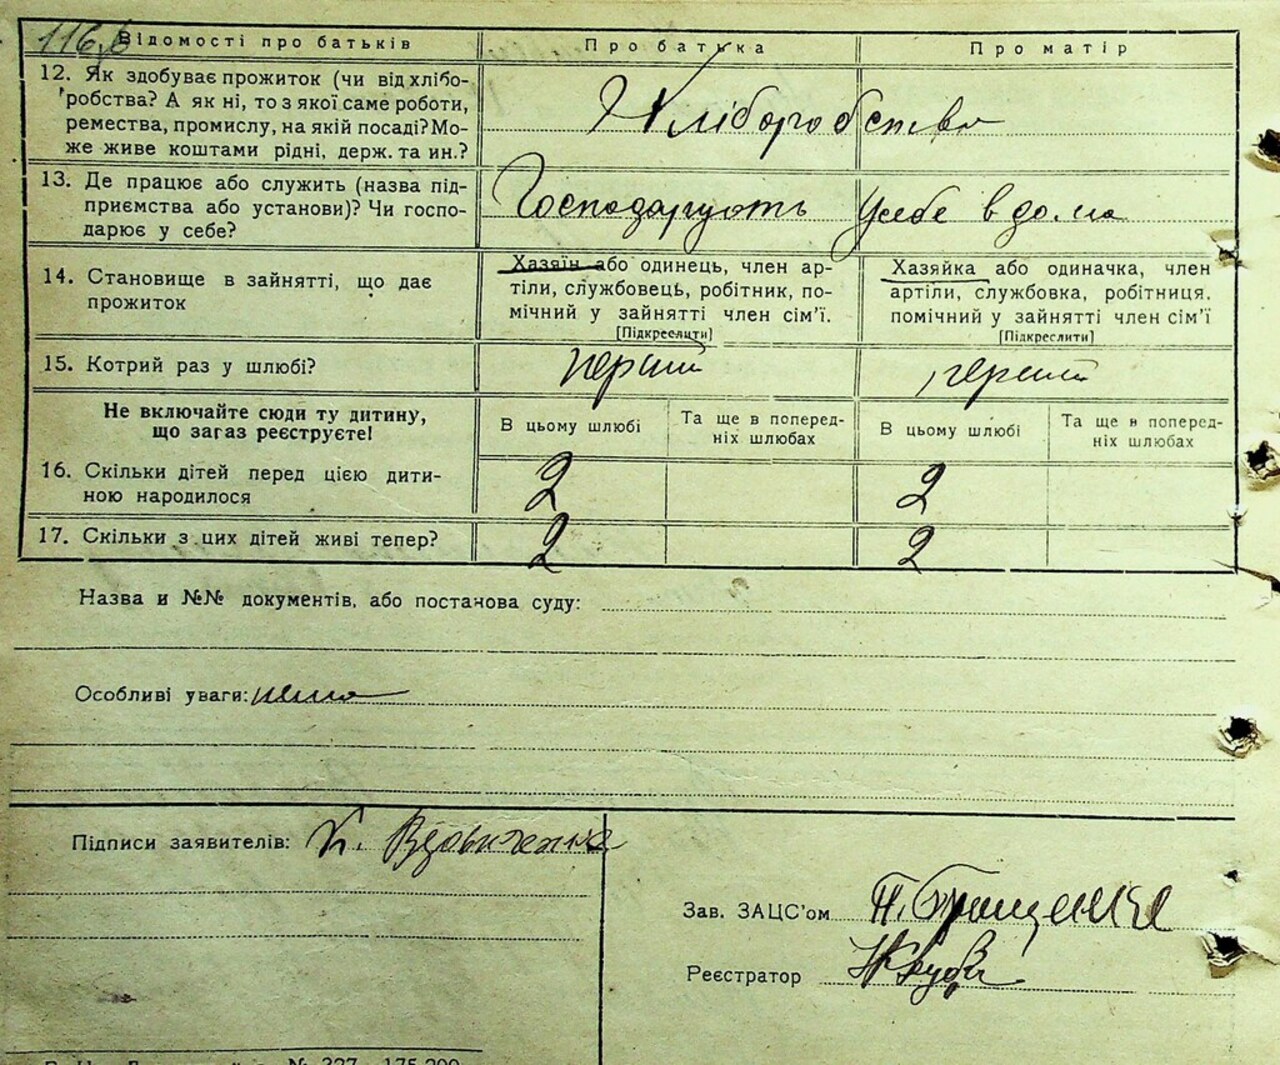 116
Відомості про батьків
Про батька
Про матір
12. Як здобуває прожиток (чи від хлібо-
робства? А як ні, то з якої саме роботи,
ремества, промислу, на якій посаді? Мо-
же живе коштами рідні, держ. та ин.?
Хліборобство
13. Де працює або служить (назва під-
приємства або установи)? Чи госпо-
дарює у себе?
Господарують у себе вдома
14. Становище в зайнятті, що дає
прожиток
Хазяїн або одинець, член ар-
тіли, службовець, робітник, по-
мічний у зайнятті член сім’ї.
[Підкреслити]
Хазяйка або одиначка, член
артіли, службовка, робітниця.
помічний у зайнятті член сім’ї
[Підкреслити]
15. Котрий раз у шлюбі?
перший
перший
Не включайте сюди ту дитину,
що загаз реєструєте!
В цьому шлюбі
Та ще в поперед-
ніх шлюбах
В цьому шлюбі
Та ще в поперед-
ніх шлюбах
16. Скільки дітей перед цією дити-
ною народилося
2
2
17. Скільки з цих дітей живі тепер?
2
2
Назва и №№ документів, або постанова суду:
Особливі уваги: нема
Підписи заявителів: К. Вдовиченко
Зав. ЗАЦС’ом
Реєстратор
№ 327 — 175.200